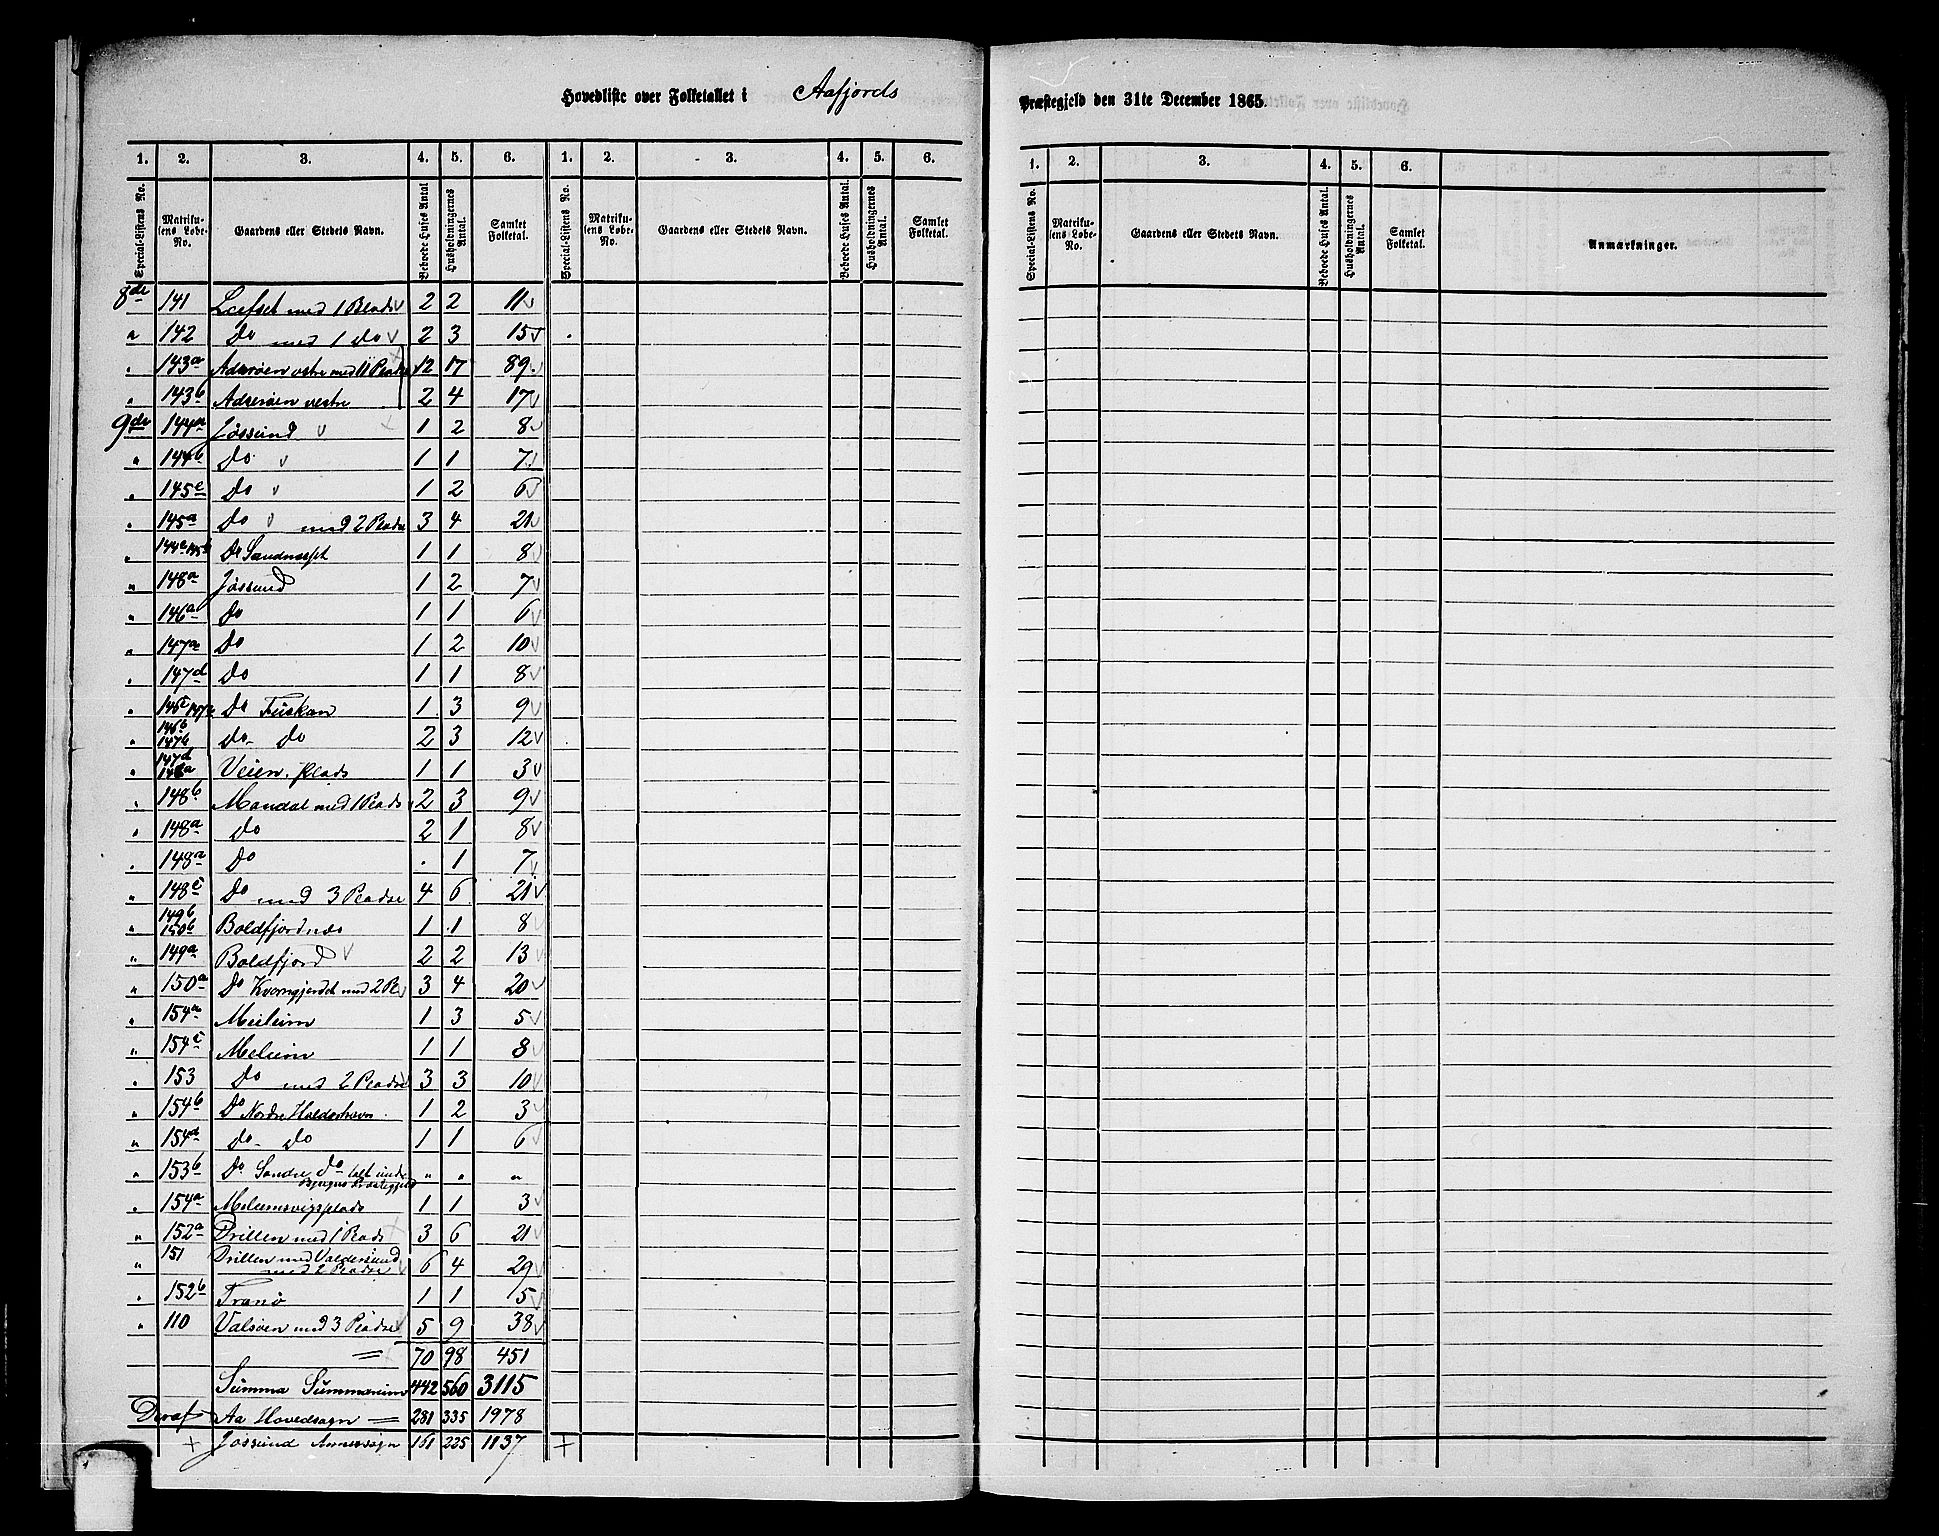 Hovedliste over Folketallet i Aafjords
Præstegjeld den 31te December 1865.
1. 2. 3. 4. 5. 6. 1. 2. 3. 4. 5. 6.
1. 2. 3. 4. 5. 6.
Special-Listens No. Matrikulens Løbe-No. Gaardens eller Stedets Navn. Beboede Huses Antal Husholdningernes Antal. Samlet Folketal. Special-Listens No. Matrikulens Løbe-No. Gaardens eller Stedets Navn. Beboede Huses Antal. Husholdningernes Antal. Samlet Folketal.
Special-Listens No. Matrikulens Løbe-No. Gaardens eller Stedets Navn. Beboede Huses Antal. Husholdningernes Antal. Samlet Folketal. Anmærkninger.
8de 141 med 1 Plads 2 2 11
" 142 Do med 1 Do 2 3 15
" 143a vestre med 11 Pladse 12 17 89
" 143b vestre 2 4 17
9de 144a Jøssund 1 2 8
" 144b Do 1 1 7
" 145c Do 1 2 6
" 145a Do med 2 Pladse 3 4 21
" 144c 145b Do Sandnesset 1 1 8
" 148a Jøssund 1 2 7
" 146a Do 1 1 6
" 147a Do 1 2 10
" 147d Do 1 1 8
" 146c 147c Do Tuskan 1 3 9
" 146b 147b Do Do 2 3 12
" 147d 148a Veien, Plads 1 1 3
" 148b Mandal med 1 Plads 2 3 9
" 148a Do 2 1 8
" 148a Do . 1 7
" 148c Do med 3 Pladse 4 6 21
" 149b 150b Boldfjordnes 1 1 8
" 149a Boldfjord 2 2 13
" 150a Do Kverngjerdet med 2 Pl 3 4 20
" 154a Melum 1 3 5
" 154c Melum 1 1 8
" 153 Do med 2 Pladse 3 3 10
" 154b Do Nordre Haldorshavn 1 2 3
" 154d Do Do 1 1 6
" 153b Do Søndre Do talt under Bjugns Præstegjeld " " "
" 154a Melumsvigsplads 1 1 3
" 152a Drillen med 1 Plads 3 6 21
" 151 Drillen med Valdersund med 2 Pladse 6 4 29
" 152b Tranø 1 1 5
" 110 Valsøen med 3 Pladse 5 9 38
= 70 98 451
Summa Summarum 442 560 3115
Deraf Aa Hovedsogn = 281 335 1978
+ Jøssund Annexsogn 161 225 1137 +